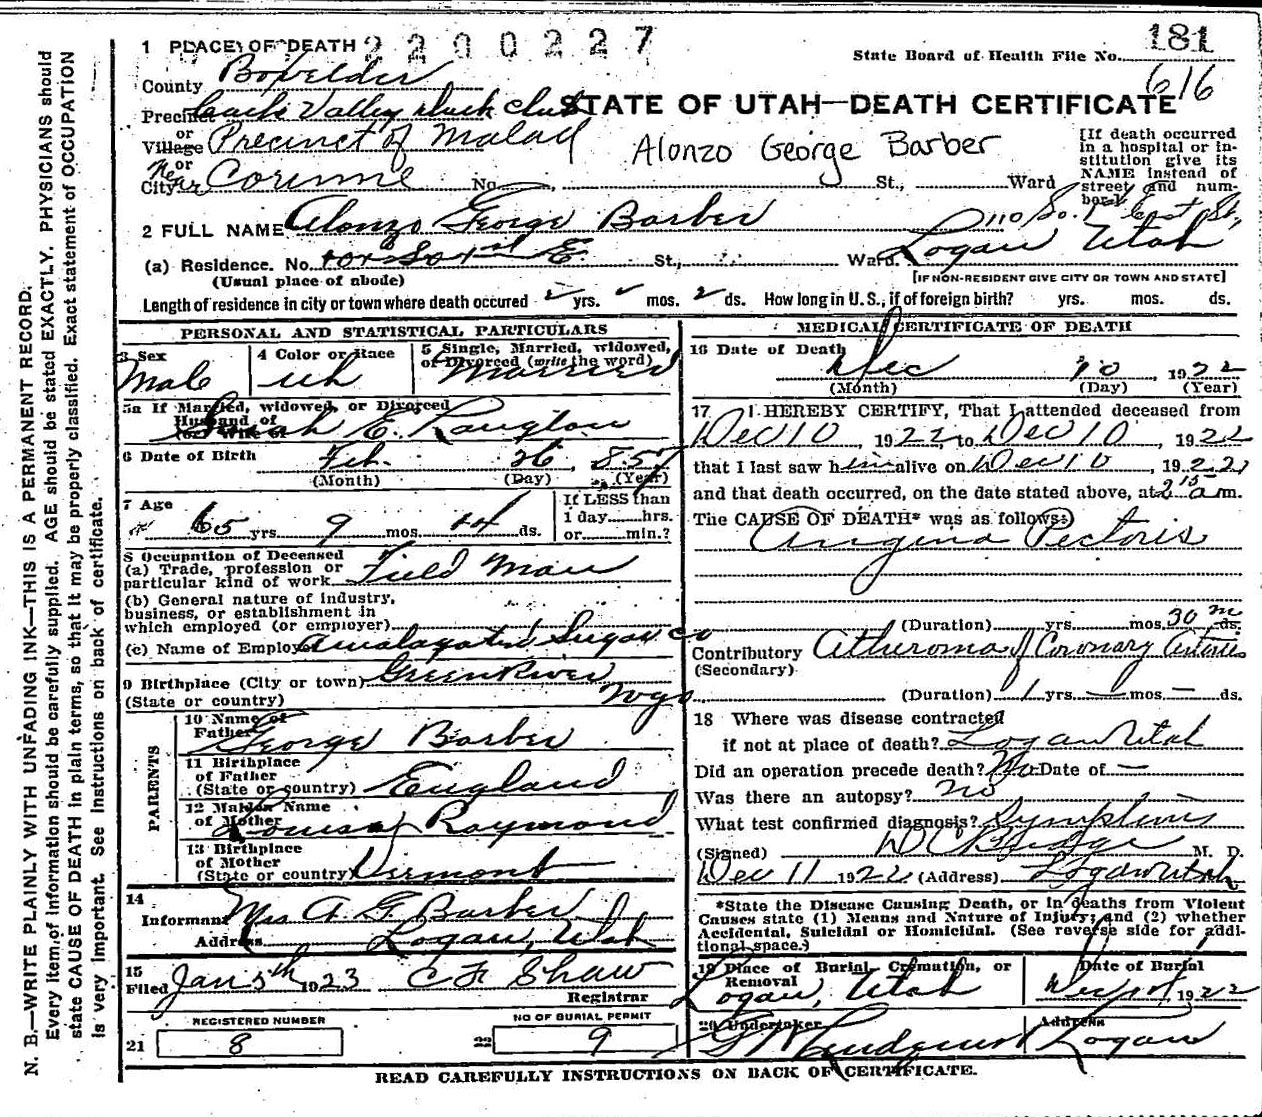 1 PLACE OF DEATH 2200227
State Board of Health File No. 181
616
County Boxelder
Precinct Cache Valley Duck Club
STATE OF UTAH—DEATH CERTIFICATE
or
Village Precinct of Malad
Alonzo George Barber
[If death occurred in a hospital or institution give its NAME instead of street and number.]
or
City Near Corinne No. St., Ward
2 FULL NAME Alonzo George Barber
110 So. 1st East St,
(a) Residence. No. St., Ward. Logan Utah
(Usual place of abode)
[IF NON-RESIDENT GIVE CITY OR TOWN AND STATE]
Length of residence in city or town where death occured yrs. mos. 2 ds. How long in U. S., if of foreign birth? yrs. mos. ds.
PERSONAL AND STATISTICAL PARTICULARS
3 Sex
Male
4 Color or Race
Wh
5 Single, Married, widowed, or Divorced (write the word)
Married
5a If Married, widowed, or Divorced
Husband of
(or) Wife of
Sarah E.
6 Date of Birth Feb. 26, 857
(Month) (Day) (Year)
7 Age
65 yrs. 9 mos. 14 ds.
If LESS than
1 day......hrs.
or......min.?
8 Occupation of Deceased
(a) Trade, profession or
particular kind of work Field Man
(b) General nature of industry,
business, or establishment in
which employed (or employer)
(c) Name of Employer Amalagated Sugar Co
9 Birthplace (City or town) Green River
(State or country) Wyo
PARENTS
10 Name of
Father George Barber
11 Birthplace
of Father
(State or country) England
12 Maiden Name
of Mother Louisa Raymond
13 Birthplace
of Mother
(State or country) Vermont
14
Informant Mrs A. G. Barber
Address Logan, Utah
15
Filed Jan 5th 1923 C F Shaw
Registrar
REGISTERED NUMBER
21 8
NO OF BURIAL PERMIT
22 9
MEDICAL CERTIFICATE OF DEATH
16 Date of Death
Dec 10 1922
(Month) (Day) (Year)
17 I HEREBY CERTIFY, That I attended deceased from
Dec 10, 1922 to Dec 10, 1922
that I last saw him alive on Dec 10, 1922
and that death occurred, on the date stated above, at 2 15 a m.
The CAUSE OF DEATH* was as follows:
Angina Pectoris
(Duration) yrs. mos. 30 m ds.
Contributory Atheroma of Coronary Arteries
(Secondary)
(Duration) 1 yrs. — mos. — ds.
18 Where was disease contracted
if not at place of death? Logan Utah
Did an operation precede death? No Date of —
Was there an autopsy? no
What test confirmed diagnosis? Symptoms
(Signed) D C Budge M. D.
Dec 11 1922 (Address) Logan Utah
*State the Disease Causing Death, or in deaths from Violent
Causes state (1) Means and Nature of Injury; and (2) whether
Accidental, Suicidal or Homicidal. (See reverse side for addi-
tional space.)
19 Place of Burial, Cremation, or
Removal
Logan, Utah
Date of Burial
1922
20 Undertaker
Address
Logan
READ CAREFULLY INSTRUCTIONS ON BACK OF CERTIFICATE.
N. B.—WRITE PLAINLY WITH UNFADING INK—THIS IS A PERMANENT RECORD.
Every item of information should be carefully supplied. AGE should be stated EXACTLY. PHYSICIANS should
state CAUSE OF DEATH in plain terms, so that it may be properly classified. Exact statement of OCCUPATION
is very important. See instructions on back of certificate.